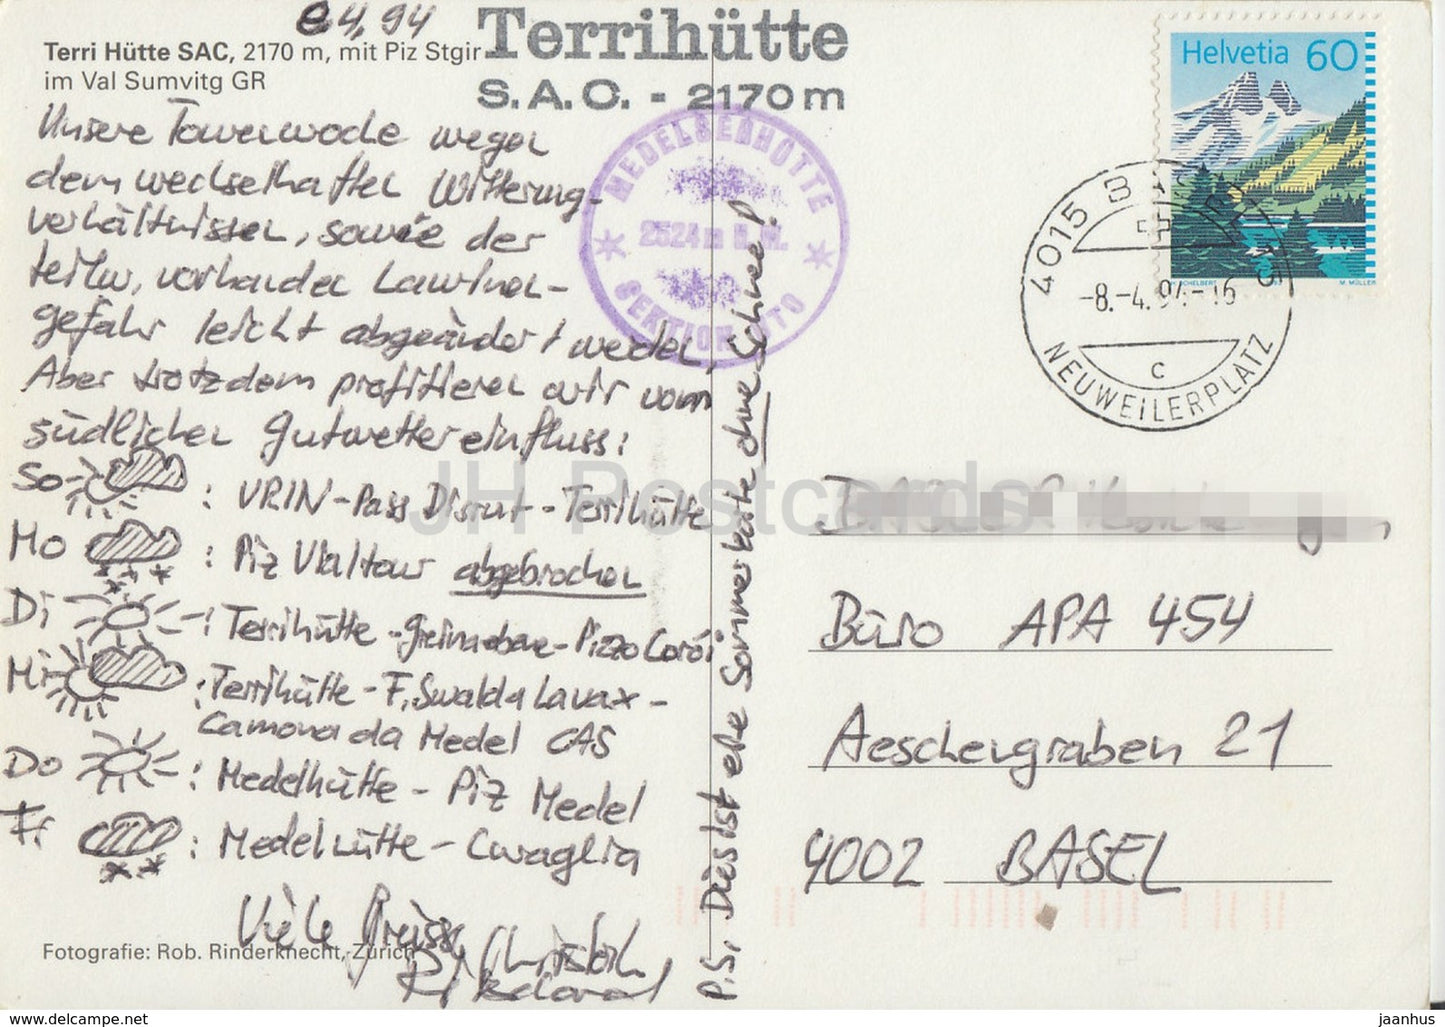 8.4.94
Terri Hütte SAC, 2170 m, mit Piz Stgir
im Val Sumvitg GR
Terrihütte
S.A.C. - 2170 m
MEDELSERHÜTTE
2524 m ü. M.
SEKTION UTO
Helvetia 60
M. MÜLLER
4015 BASEL 15
-8.-4.94-16
C
NEUWEILERPLATZ
Unsere Tourenwoche wegen
dem wechselhaften Witterungs-
verhältnissen, sowie der
teilw. vorhanden Lawinen-
gefahr leicht abgeändert werden.
Aber trotzdem profitieren wir vom
südlichen Gutwettereinfluss:
So : VRIN-Pass Disrut-Terrihütte
Mo : Piz Vialtour abgebrochen
Di : Terrihütte-Greinaebene-Pizzo Coroi
Mi : Terrihütte-F. Swalda Lavaz-
Camona da Medel CAS
Do : Medelhütte-Piz Medel
Fr. : Medelhütte-Curaglia
Viele Grüsse
P.S. Dies ist eine Sommerkarte ohne Schnee!
Büro APA 454
Aeschengraben 21
4002 BASEL
Fotografie: Rob. Rinderknecht, Zürich
JH Postcards
hippostcard.com/store/jh-postcards
jaanhus